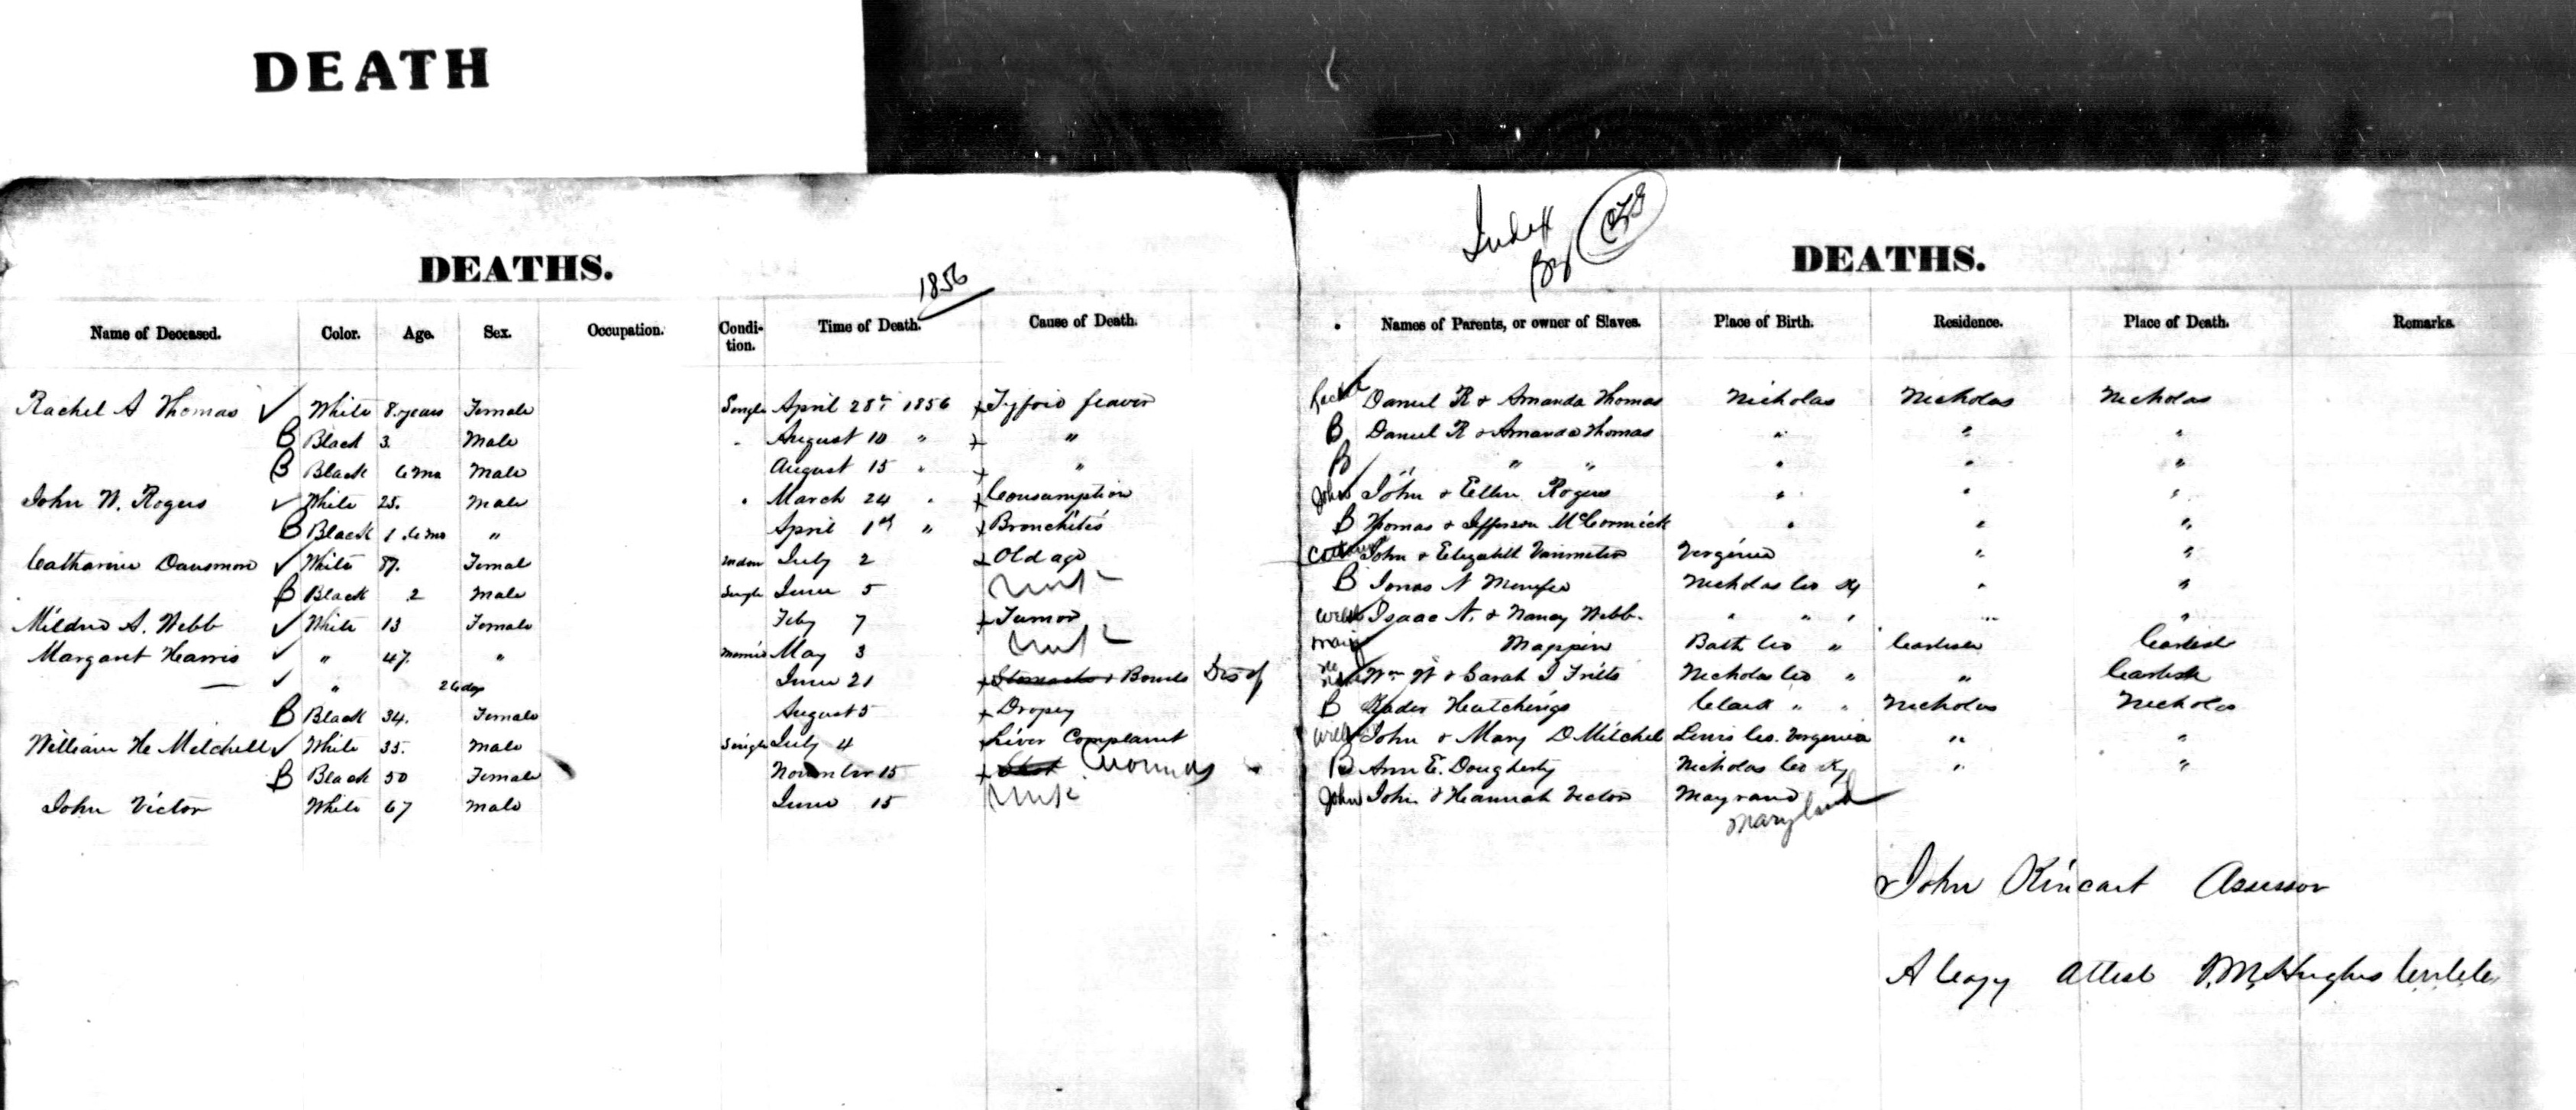 DEATH
Index
By
DEATHS. 1856 DEATHS.
Name of Deceased. Color. Age. Sex. Occupation. Condi-tion. Time of Death. Cause of Death. Names of Parents, or owner of Slaves. Place of Birth. Residence. Place of Death. Remarks.
Rachel A Thomas ✓ White 8 years Female Single April 28th 1856 Tyfoid feaver Daniel R & Amanda Thomas Nicholas Nicholas Nicholas
B Black 3 Male August 10 " " B Daniel R & Amanda Thomas " " "
B Black 6 mo Male August 15 " " B " " " " "
John W. Rogers ✓ White 25. Male " March 24 " Consumption John John & Ellen Rogers " " "
B Black 1.6 mo " April 1st " Bronchitis B Thomas & Jefferson McCormick " " "
Catharine ✓ White 87. Female July 2 Old age John & Elizabeth Vanmeter Virginia " "
B Black 2 Male Single June 5 Unk B Jonas N Menifee Nicholas Co Ky " "
Mildred A. Webb ✓ White 13 Female Feby 7 Tumor Isaac N. & Nancy Webb. " " " " "
Margaret Harris ✓ " 47. " Married May 3 Unk Mappin Bath Co " Carlisle Carlisle
— ✓ " 26 days June 21 Stomach & Bowels Dis of Wm W & Sarah J Fritts Nicholas Co " " Carlisle
B Black 34. Female August 5 Dropsy B Hutchings Clark " " Nicholas Nicholas
William H Mitchell ✓ White 35. Male Single July 4 Liver Complaint John & Mary D Mitchel Lewis Co. Virginia " "
B Black 50 Female November 15 Wounds B Ann E. Dougherty Nicholas Co Ky " "
John Victor White 67 Male June 15 Unk John John & Hannah Victor Mayrand
Maryland
John Kincart Assessor
A Copy Attest Hughes